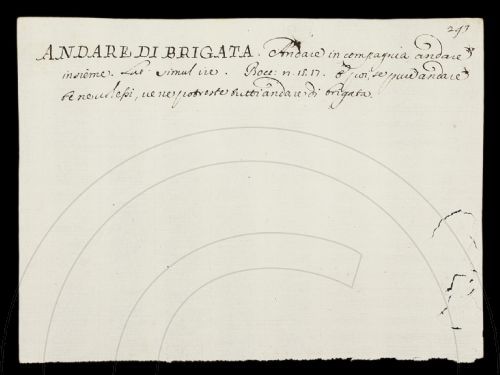 297
ANDARE DI BRIGATA. Andare in compagnia andare
insieme. Lat simul ire. Bocc: n. 18. 17. e poi, se pure andare
te ne volessi, ve ne potreste tutti andare di brigata.